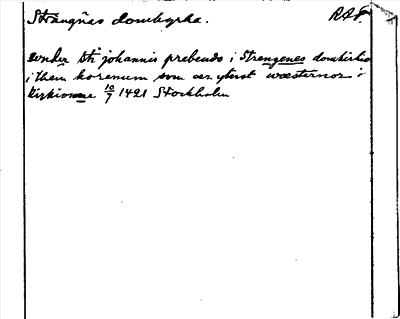 Strängnäs domkyrka. RAP
under Sti johannis prebendo i Strengenes domkirkio
i them korenum som ær yterst wæsternor i
kirkionne 10/7 1421 Stockholm